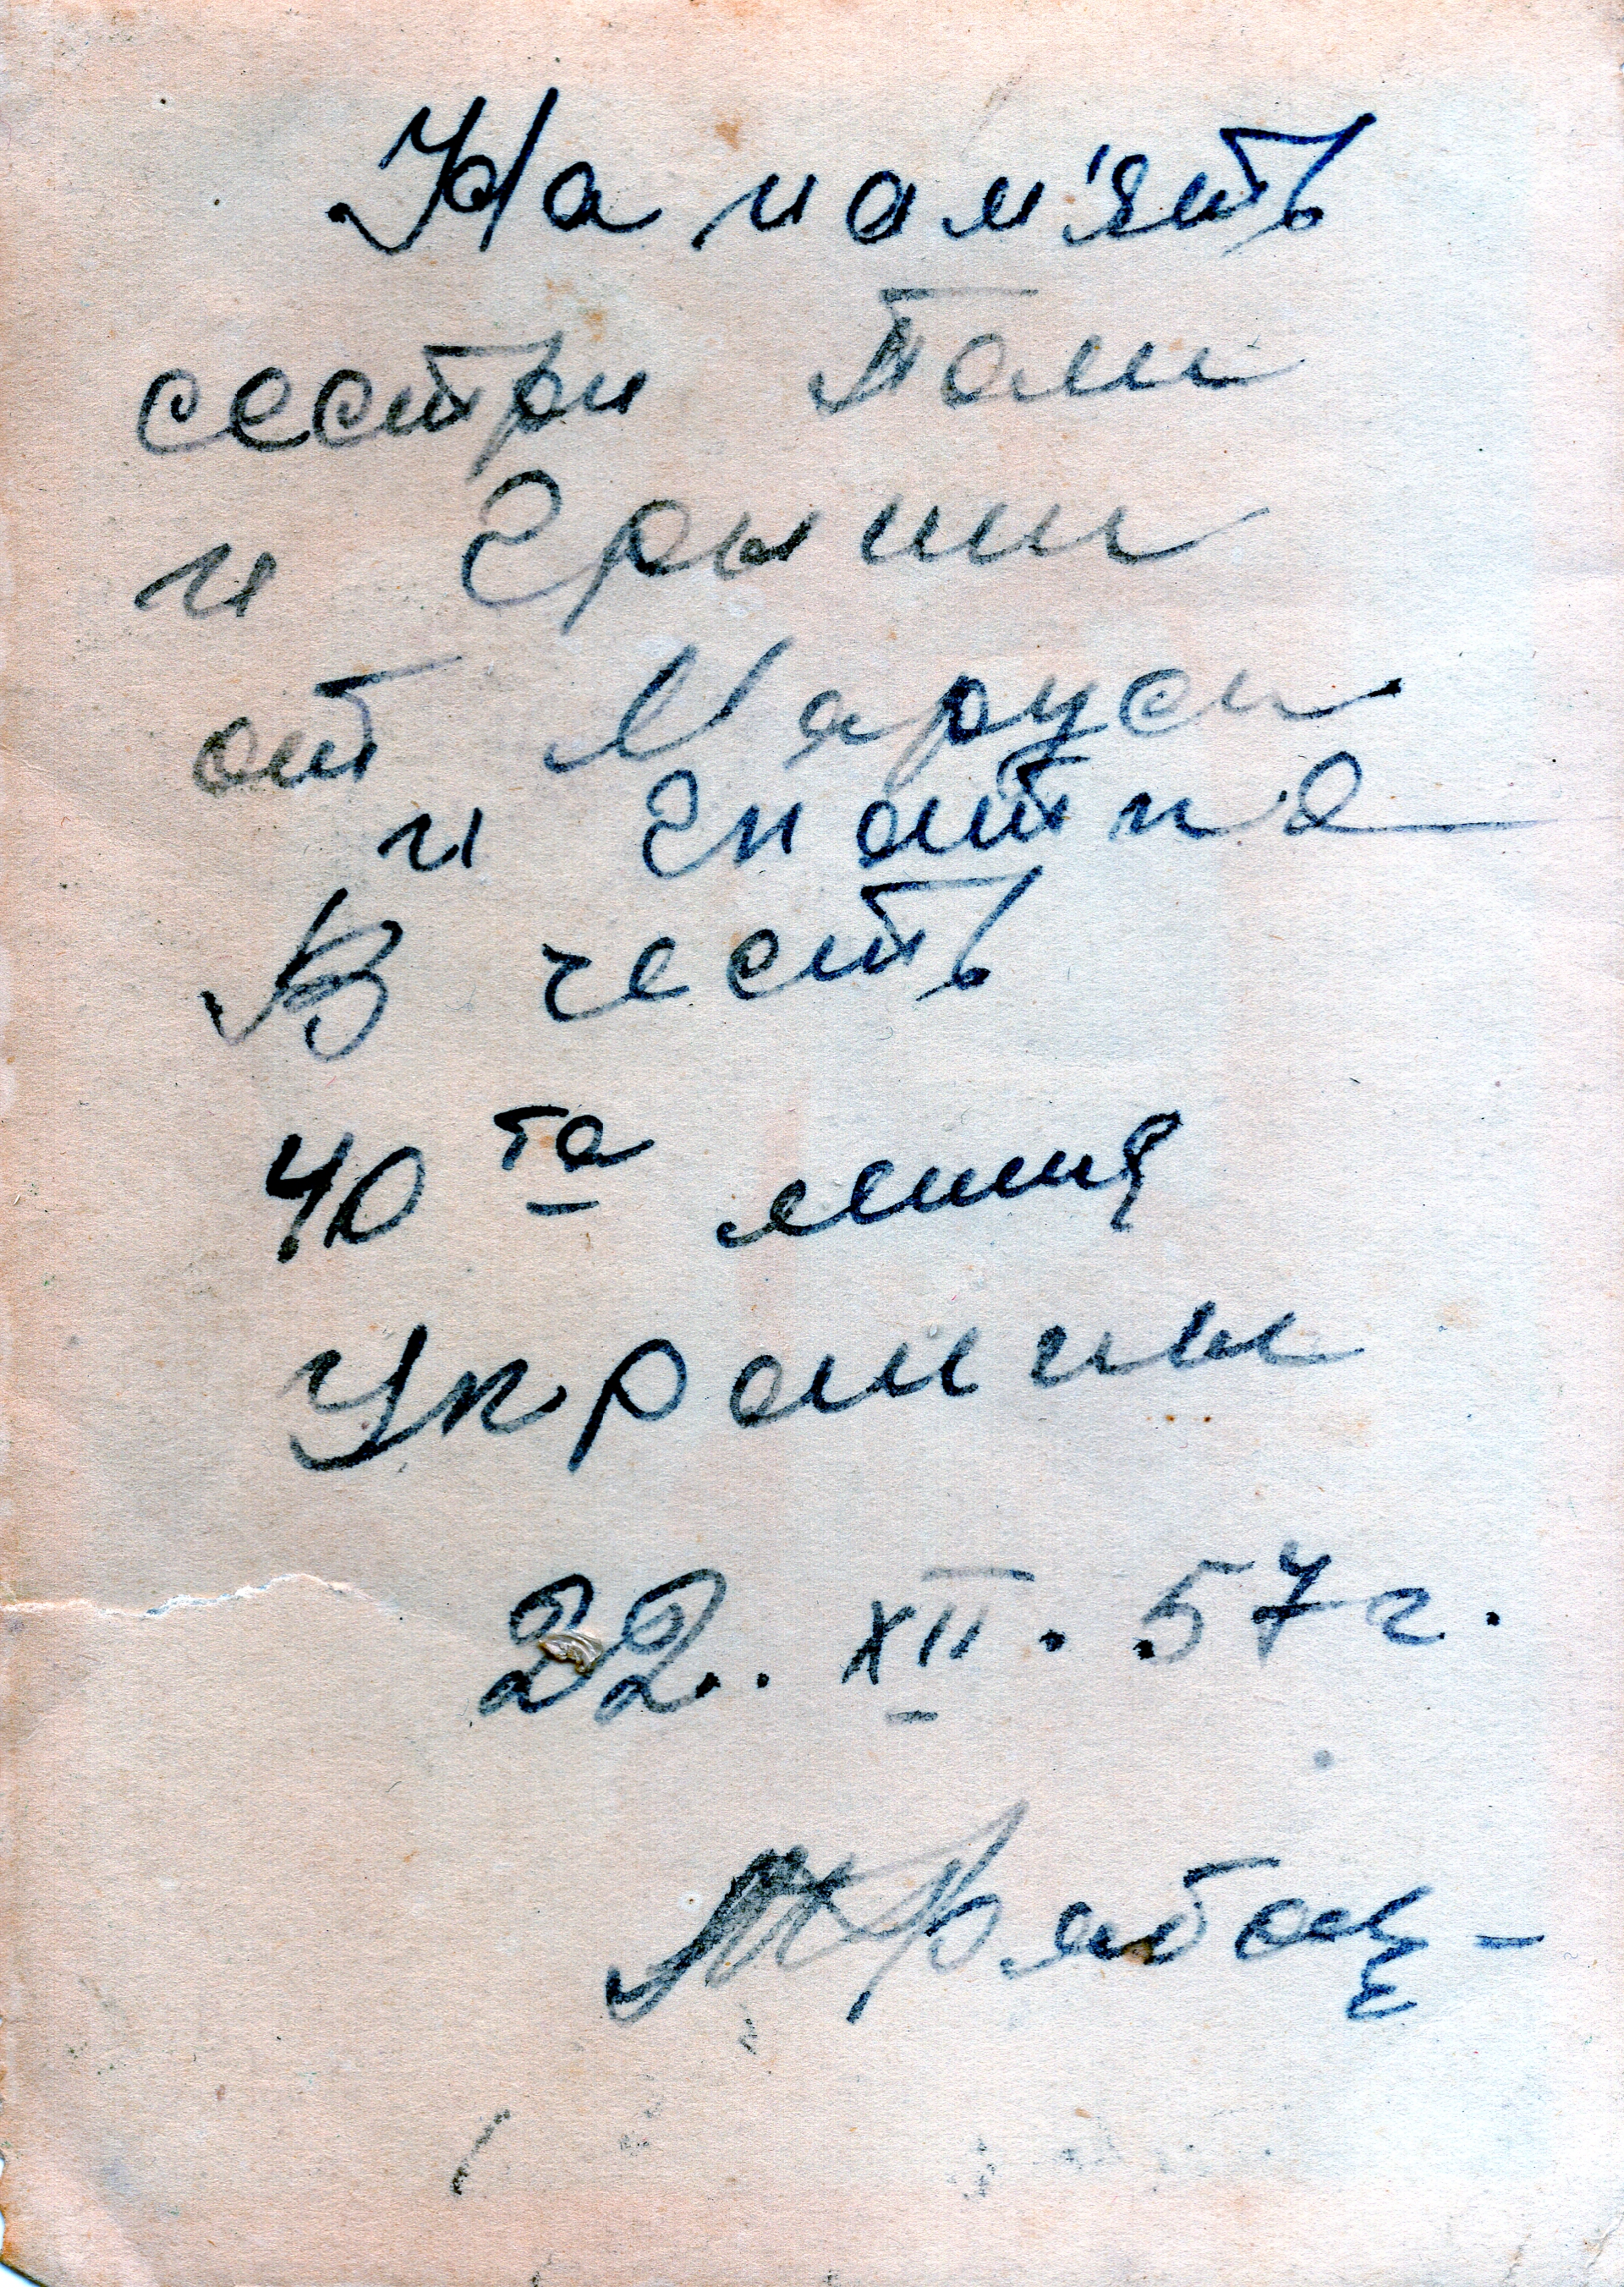 На пам'ять
сестри Поли
и Грыши
от Маруси
и Гнатка
В честь
40 та летия
Украины
22.. XII. 57 г.
Рябоц-